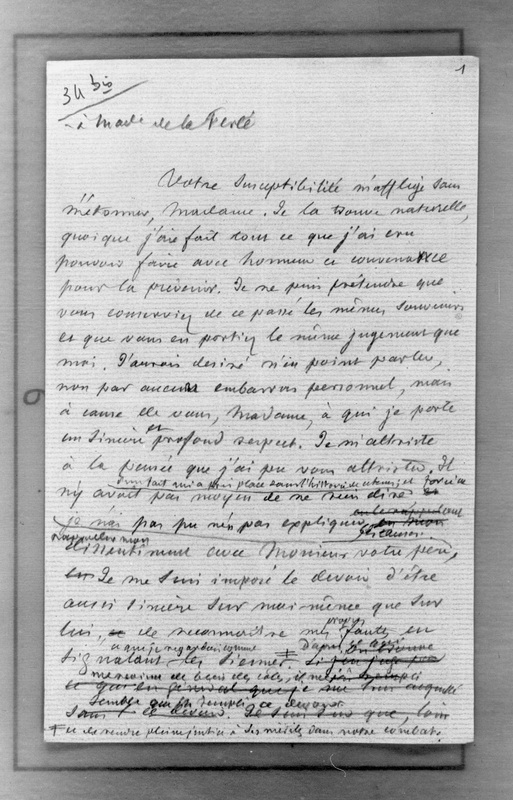 1
34 bis
à Made de la Ferté
Votre susceptibilité m'afflige sans
m'étonner, Madame. Je la trouve naturelle,
quoique j'aie fait tout ce que j'ai cru
pouvoir faire avec honneur et convenance
pour la prévenir. Je ne puis prétendre que
vous conserviez de ce passé les mêmes souvenirs
et que vous en portiez le même jugement que
moi. J'aurais désiré n'en point parler,
non par aucun embarras personnel, mais
à cause de vous, Madame, à qui je porte
un sincère et profond respect. Je m'attriste
à la pensée que j'ai pu vous attrister. Il
d'un fait qui a pris place dans l'histoire du temps, et forcé
n'y avait pas moyen de ne rien dire
en le rappelant
je n'ai pas pu n'en pas expliquer
les causes.
dissentiment avec Monsieur votre père,
Je me suis imposé le devoir d'être
aussi sincère sur moi-même que sur
lui, de reconnaître mes propres fautes en
signalant les siennes.
à ce que je regardais comme
Sans ce devoir. Je que, loin
et de rendre pleine justice à ses mérites dans notre combat.